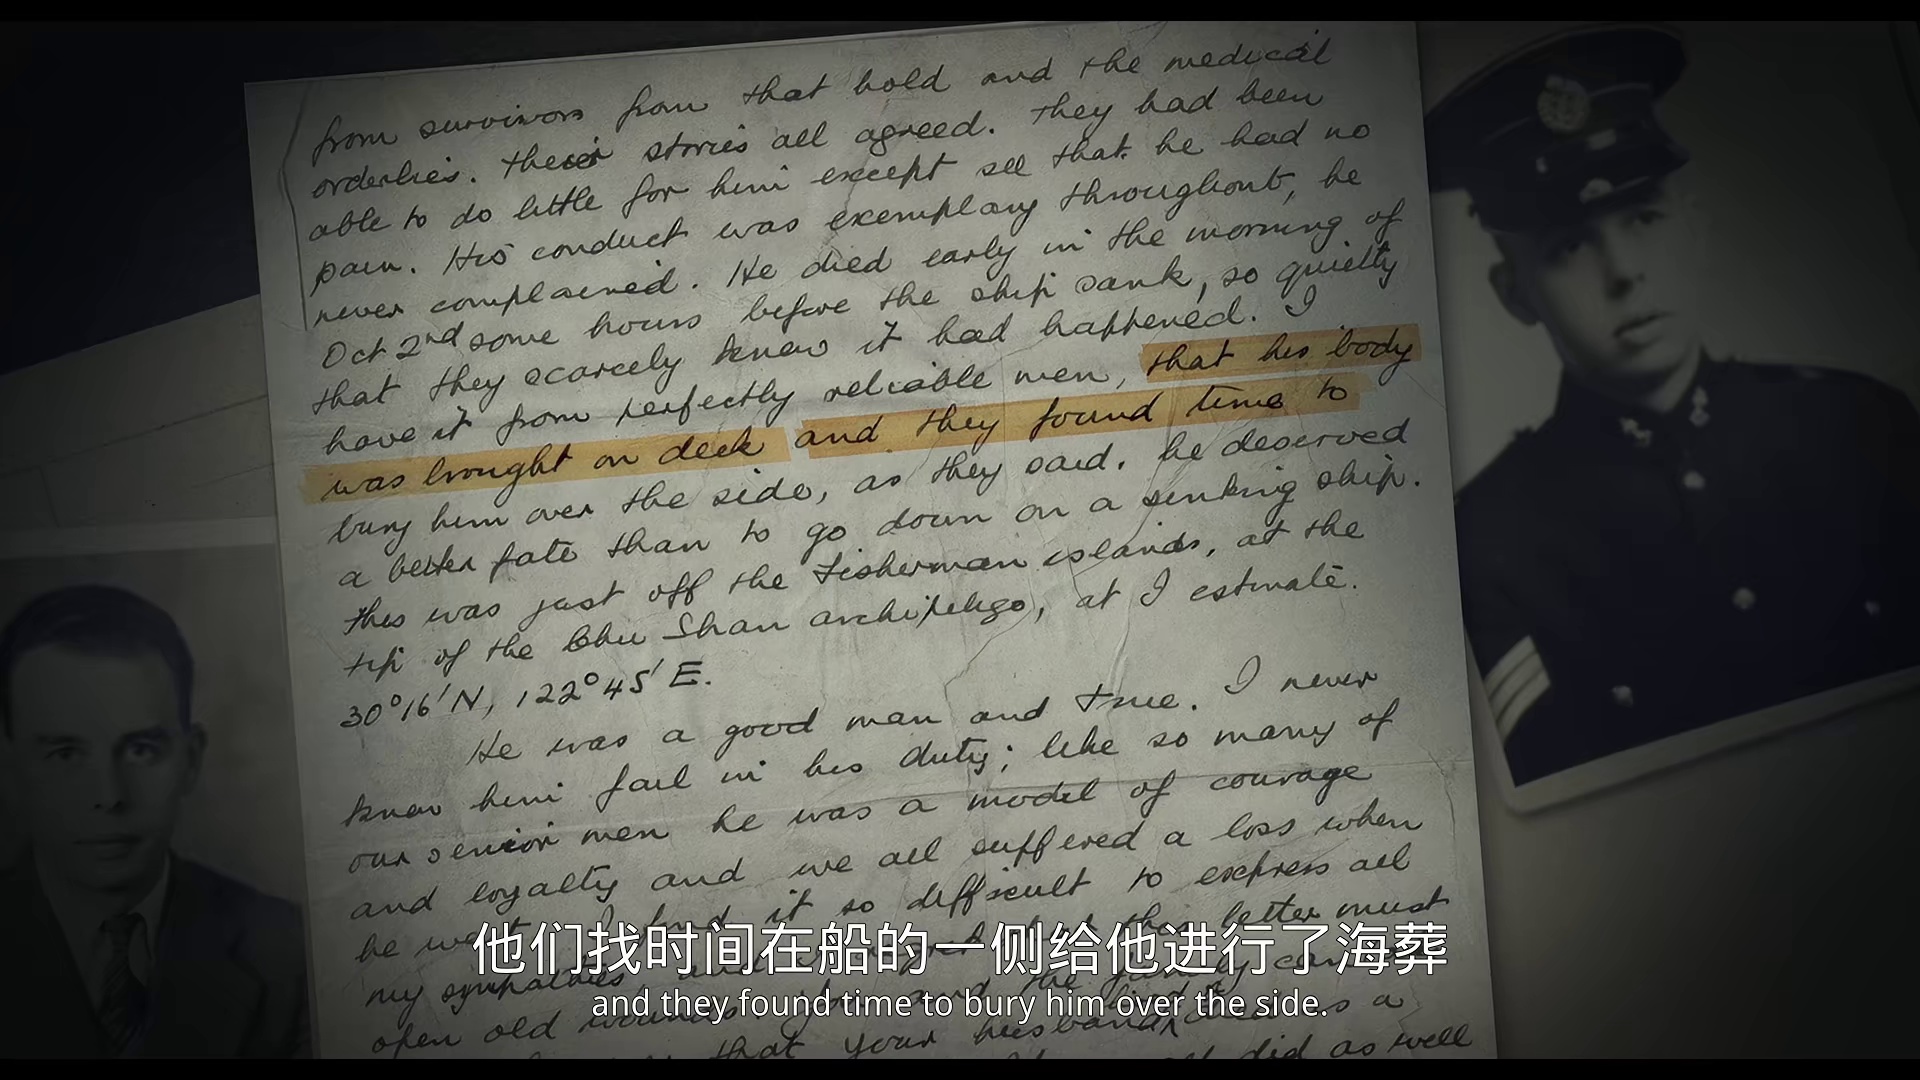 from survivors from that hold and the medical
orderlies. their stories all agreed. They had been
able to do little for him except see that he had no
pain. His conduct was exemplary throughout, he
never complained. He died early in the morning of
Oct 2nd some hours before the ship sank, so quietly
that they scarcely knew it had happened. I
have it from perfectly reliable men, that his body
was brought on deck and they found time to
bury him over the side, as they said. he deserved
a better fate than to go down on a sinking ship.
this was just off the Fisherman islands, at the
tip of the Chu Shan archipelago, at I estimate.
30°16'N, 122°45'E.
He was a good man and true. I never
knew him fail in his duty; like so many of
our senior men he was a model of courage
and loyalty and we all suffered a loss when
he went. I find it so difficult to express all
my sympathies and this letter must
open old wounds and the family
that your husband as a
did as well
他们找时间在船的一侧给他进行了海葬
and they found time to bury him over the side.